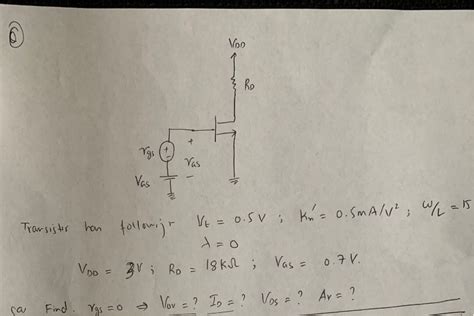 6
VDD
RD
vgs
+
-
+
vgs
-
VGS
Transistor has following:- Vt = 0.5V ; Kn' = 0.5mA/V² ; W/L = 15
λ = 0
VDD = 3V ; RD = 18kΩ ; VGS = 0.7V.
Find. vgs=0 ⇒ VOV = ? ID = ? VDS = ? Av = ?